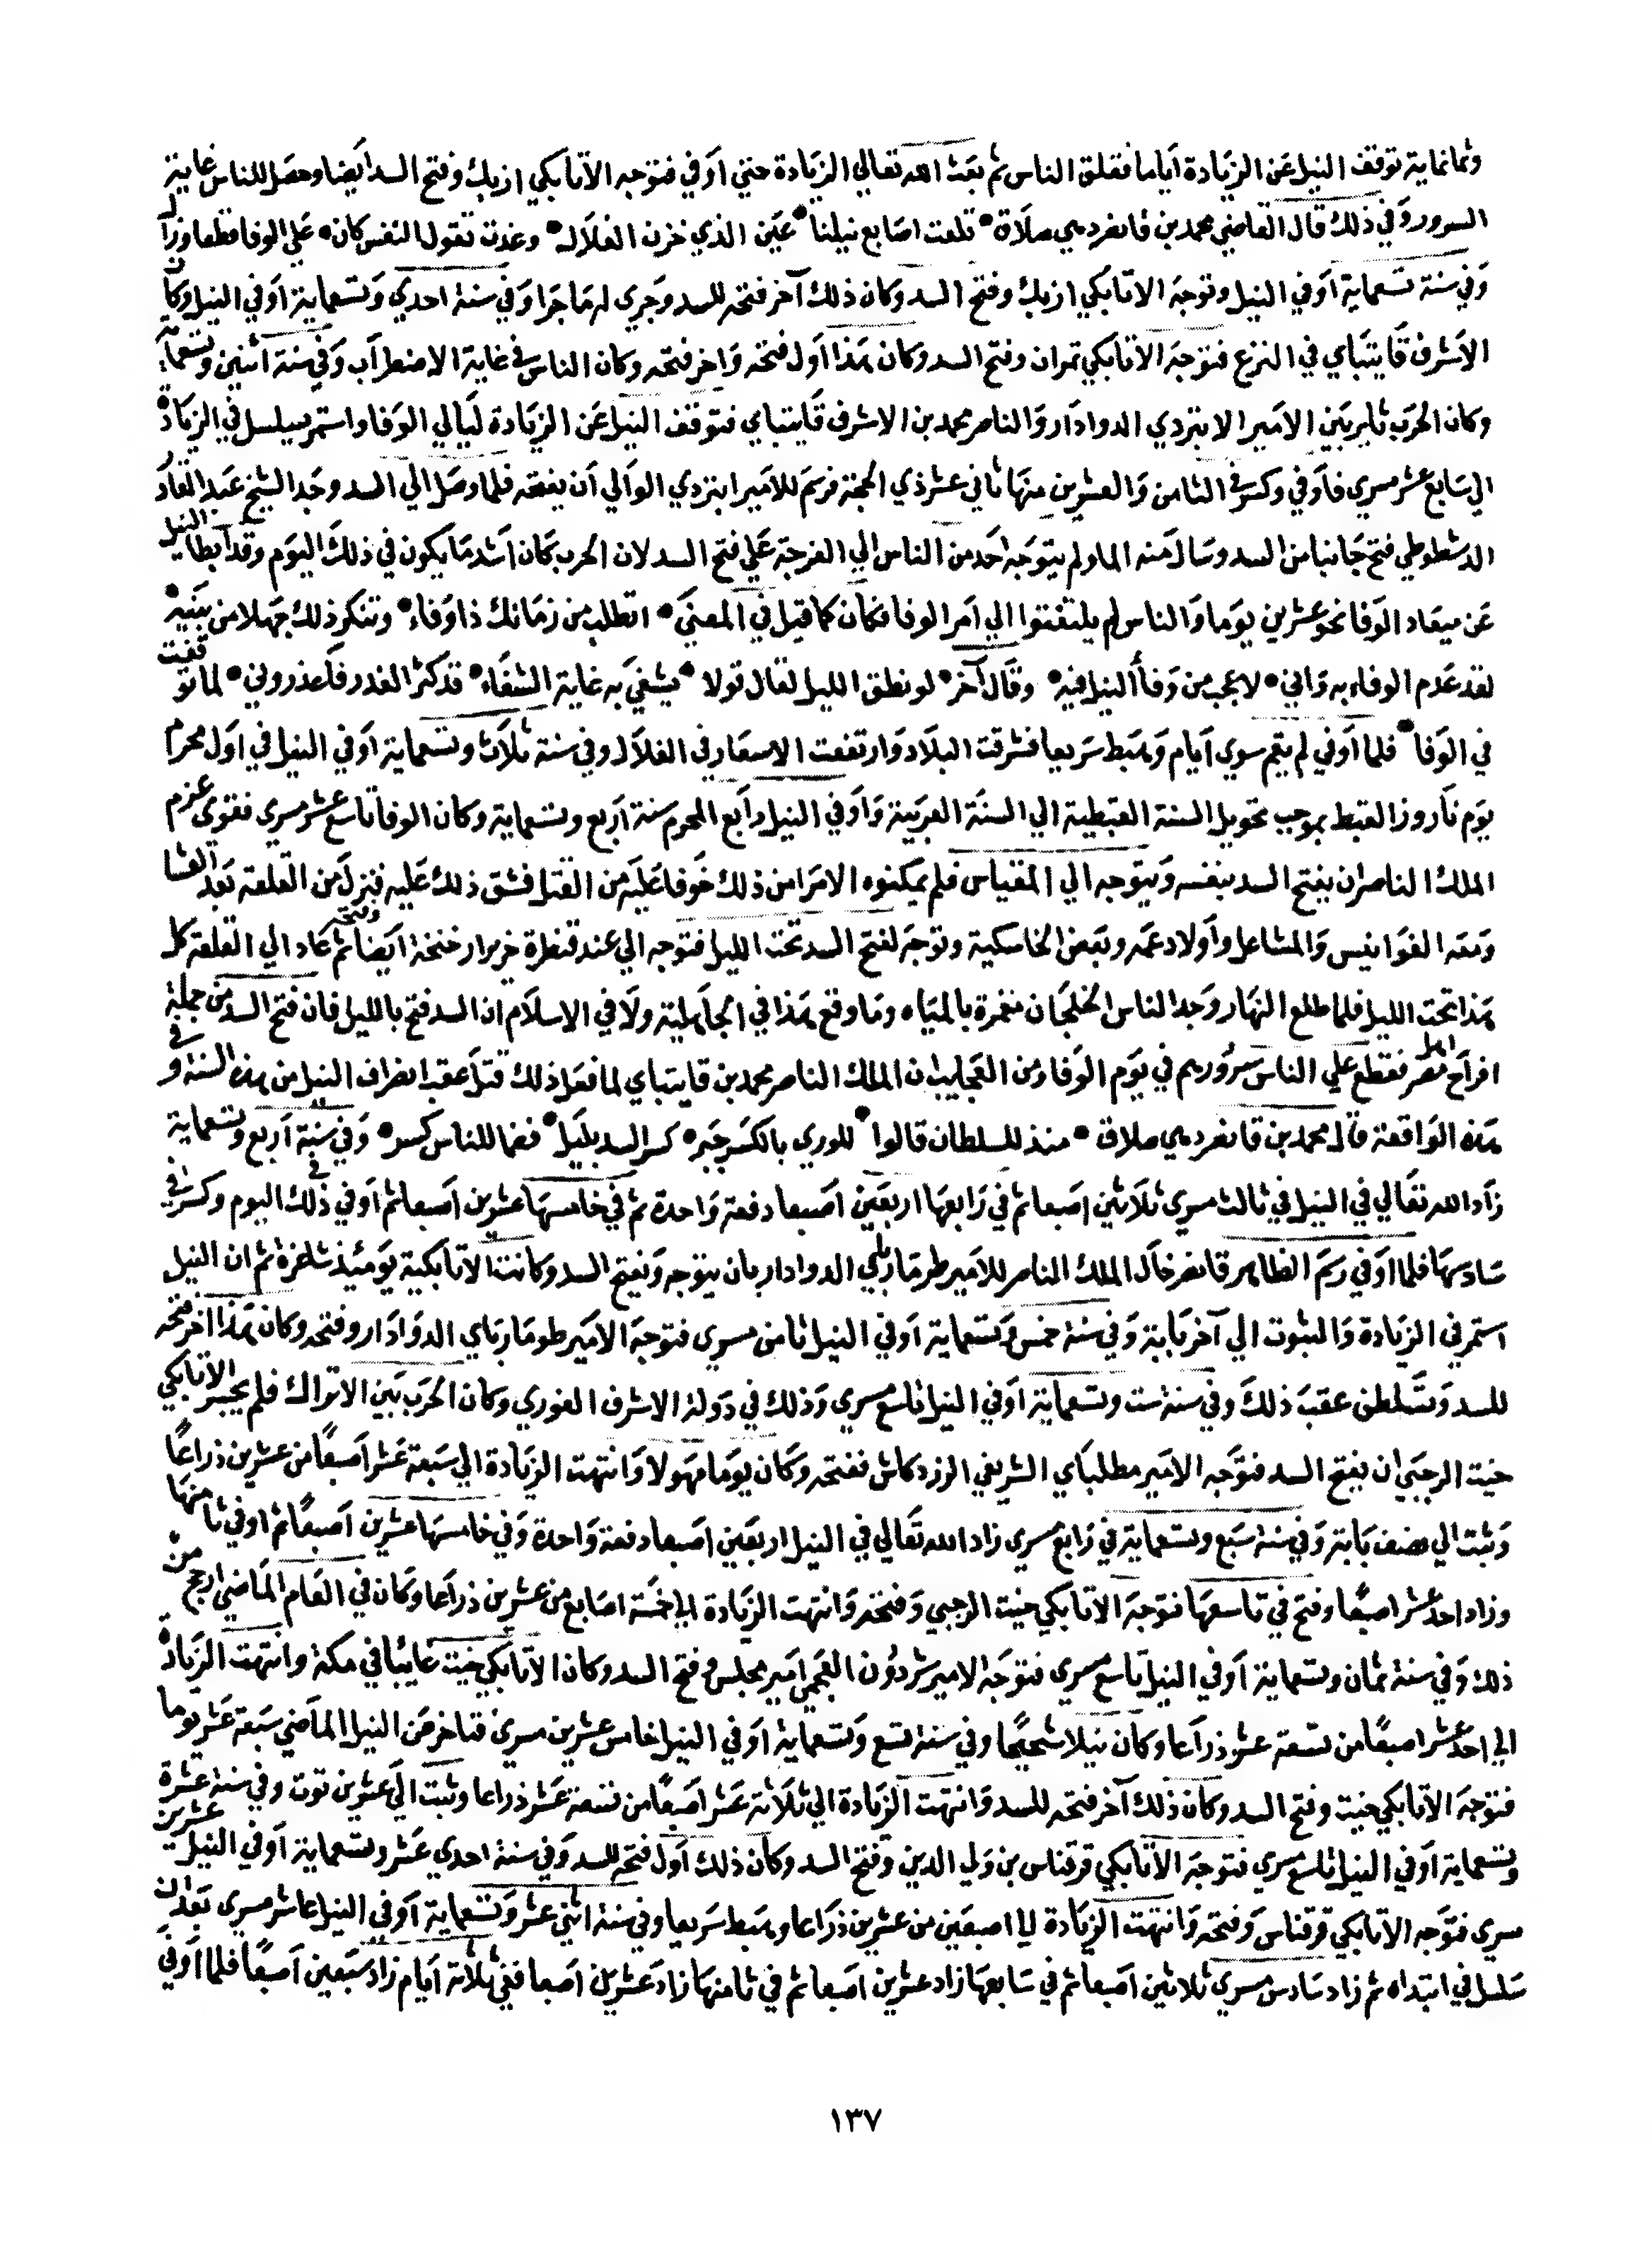 وثمانماية توقف النيل عن الزيادة أياما فقلق الناس ثم بعث الله تعالي الزيادة حتي أوفي فتوجه الاتابكي ازبك وفتح السد ايضا وحصل للناس غاية
السرور وفي ذلك قال القاضي محمد بن قانصر دمي صلاة • تلعت اصابع نيلنا • عين الذي خزن الغلال • وغدت تقول النفس كان • علي الوفا قطعا وزال
وفي سنة تسعماية أوفي النيل وتوجه الاتابكي ازبك وفتح السد وكان ذلك آخر فتحه للسد وجري له ما جرا وفي سنة احدي وتسعماية أوفي النيل وكان
الاشرف قايتباي في النزع فتوجه الاتابكي تمران وفتح السد وكان هذا أول فتحه واخر فتحه وكان الناس في غاية الاضطراب وفي سنة اثنين وتسعماية
وكان الحرب ثاير بين الامير الابتردي الدوادار والناصر محمد بن الاشرف قايتباي فتوقف النيل عن الزيادة ليالي الوفا واستمر يسلسل في الزيادة
الي سابع عشر مسري فأوفي وكسر في الثامن والعشرين منها ثاني عشر ذي الحجة فرسم للامير ابتردي الوالي أن يفتحه فلما وصل الي السد وجد الشيخ عبد القادر
الدشطوطي فتح جانبا من السد وسال منه الما ولم يتوجه احد من الناس الي الفرجة علي فتح السد لان الحرب كان اشد ما يكون في ذلك اليوم وقد أبطا النيل
عن ميعاد الوفا نحو عشرين يوما والناس لم يلتفتوا الي امر الوفا فكان كما قيل في المعني • اتطلب من زمانك ذا وفاء • وتنكر ذلك جهلا من بنيه •
لقد عدم الوفاء به واني • لا عجب من وفأ النيل فيه • وقال آخر • لو نطق الليل لقال قولا • يشفي به غاية الشفاء • قد كثر الغدر فاعذروني • لما توقفت
في الوفا • فلما أوفي لم يقم سوي أيام وهبط سريعا فشرقت البلاد وارتفعت الاسعار في الغلال وفي سنة ثلاث وتسعماية أوفي النيل في اول محرم
يوم ناروز القبط بموجب تحويل السنة القبطية الي السنة العربية وأوفي النيل رابع المحرم سنة أربع وتسعماية وكان الوفا تاسع عشر مسري فقوي عزم
الملك الناصر ان يفتح السد بنفسه ويتوجه الي المقياس فلم يمكنوه الامرا من ذلك خوفا عليه من القتل فشق ذلك عليه فنزل من القلعة بعد العشا
ومعه الفوانيس والمشاعل وأولاد عمه وبعض الخاسكية وتوجه لفتح السد تحت الليل فتوجه الي عند قنطرة وفتحه ايضا ثم عاد الي القلعة كل
هذا تحت الليل فلما طلع النهار وجد الناس الخلجان منغمرة بالمياه وما وقع هذا في الجاهلية ولا في الاسلام ان السد فتح بالليل فان فتح السد من جملة
افراح مصر فقطع علي الناس سرورهم في يوم الوفا ومن العجايب ان الملك الناصر محمد بن قايتباي لما فعل ذلك قتل عقب انصراف النيل من هذه السنة وفي
هذه الواقعة قال محمد بن قانصر دمي صلاق • منذ للسلطان قالوا • للوري بالكسر جبر • كسر السد بليل • فضا للناس كسر • وفي سنة أربع وتسعماية
زاد الله تعالي في النيل في ثالث مسري ثلاثين اصبعا ثم في رابعها اربعين اصبعا دفعة واحدة ثم في خامسها عشرين اصبعا ثم أوفي في ذلك اليوم وكسر في
سادسها فلما أوفي رسم الظاهر قانصر خال الملك الناصر للامير طرماباي الدوادار بان يتوجه ويفتح السد وكانت الاتابكية يومئذ شاغرة ثم ان النيل
استمر في الزيادة والثبوت الي آخر بابة وفي سنة خمس وتسعماية أوفي النيل ثامن مسري فتوجه الامير طومارباي الدوادار وفتحه وكان هذا اخر فتحه
للسد وتسلطن عقب ذلك وفي سنة ست وتسعماية أوفي النيل تاسع مسري وذلك في دولة الاشرف الغوري وكان الحرب بين الاتراك فلم يجسر الاتابكي
خيت الرجبي ان يفتح السد فتوجه الامير مطلباي الشريفي الزردكاش ففتحه وكان يوما مهولا وانتهت الزيادة الي سبعة عشر اصبعًا من عشرين ذراعًا
وثبت الي نصف بابة وفي سنة سبع وتسعماية في رابع مسري زاد الله تعالي في النيل اربعين اصبعا دفعة واحدة وفي خامسها عشرين اصبعًا ثم اوفي ثامنها
وزاد احد عشر اصبعًا وفتح في تاسعها فتوجه الاتابكي خيت الرجبي وفتحه وانتهت الزيادة الي خمسة اصابع من عشرين ذراعا وكان في العام الماضي ارجح من
ذلك وفي سنة ثمان وتسعماية أوفي النيل تاسع مسري فتوجه الامير شردون العجمي امير مجلس وفتح السد وكان الاتابكي خيت غايبًا في مكة وانتهت الزيادة
الي احد عشر اصبعًا من تسعة عشر ذراعا وكان نيلا شحيحًا وفي سنة تسع وتسعماية أوفي النيل خامس عشرين مسري فتاخر عن النيل الماضي سبعة عشر يوما
فتوجه الاتابكي خيت وفتح السد وكان ذلك آخر فتحه للسد وانتهت الزيادة الي ثلاثة عشر اصبعًا من تسعة عشر ذراعا وثبت الي عشرين توت وفي سنة عشرة
وتسعماية أوفي النيل تاسع مسري فتوجه الاتابكي قرقناس بن ولي الدين وفتح السد وكان ذلك أول فتحه للسد وفي سنة احدي عشر وتسعماية أوفي النيل عشرين
مسري فتوجه الاتابكي قرقناس وفتحه وانتهت الزيادة الي اصبعين من عشرين ذراعا وهبط سريعا وفي سنة اثني عشر وتسعماية أوفي النيل عاشر مسري بعد ان
سلسل في ابتداه ثم زاد سادس مسري ثلاثين اصبعا ثم في سابعها زاد عشرين اصبعا ثم في ثامنها زاد عشرين اصبعا ففي ثلاثة أيام زاد سبعين اصبعًا فلما أوفي
١٣٧